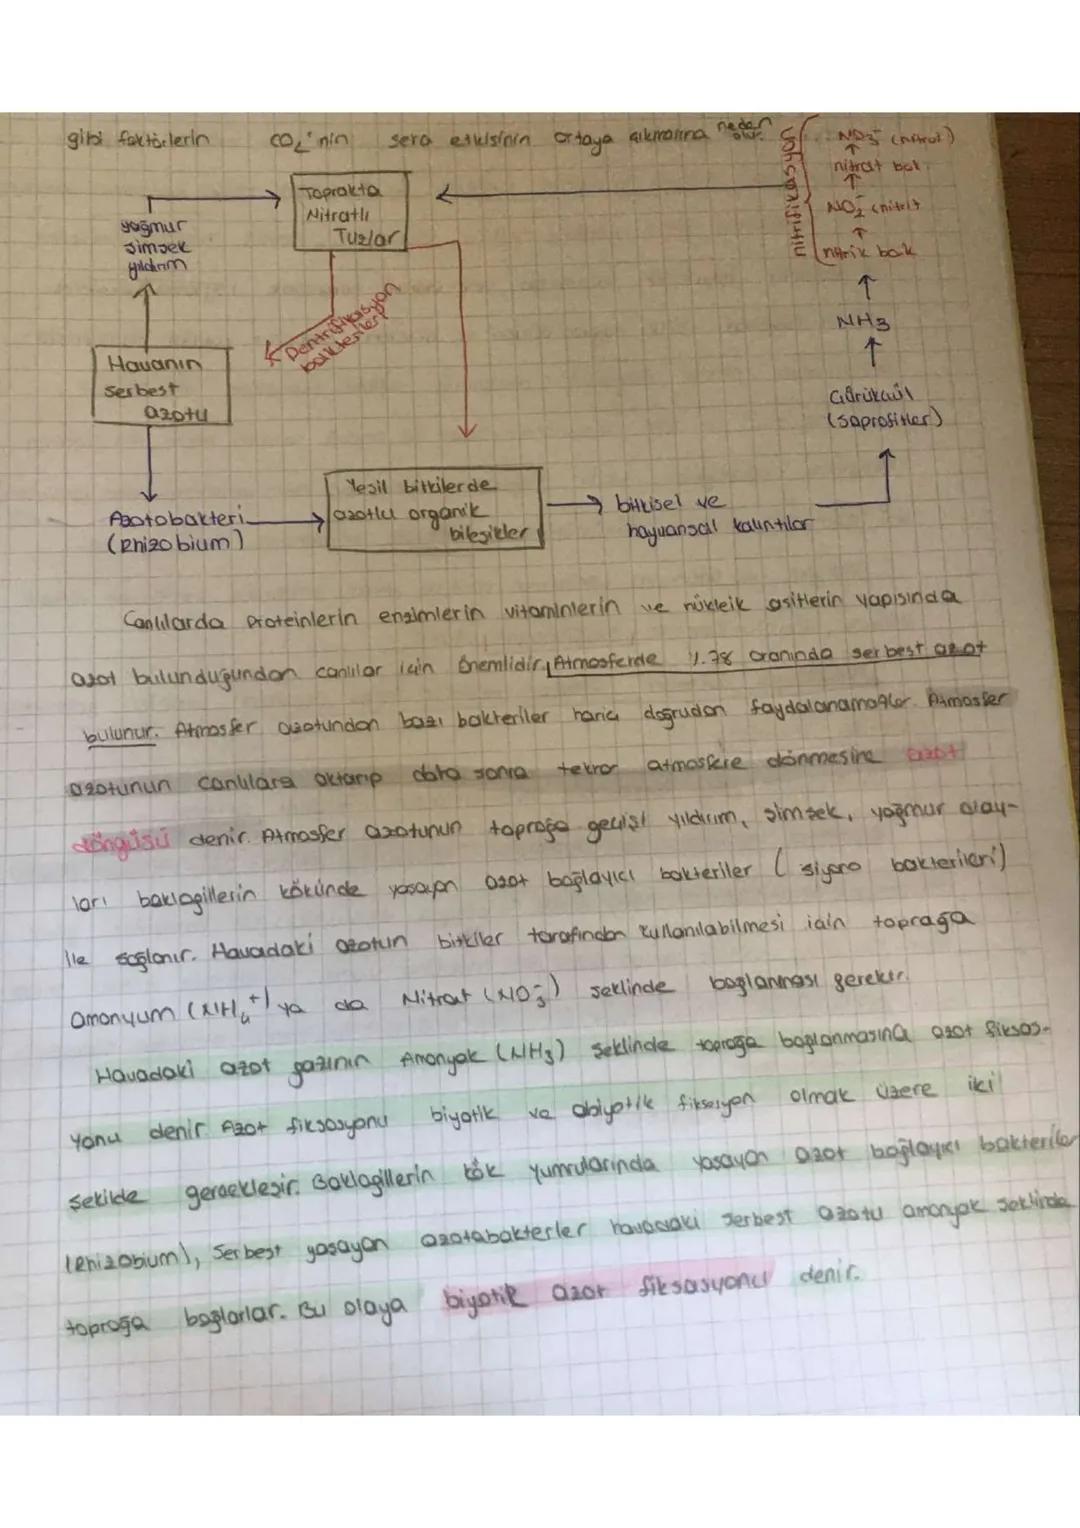 gibi faktörlerin CO₂'nin sera etkisinin ortaya çıkmasına neden olur.
NO₃⁻ (nitrat)
nitrat bak.
NO₂⁻ (nitrit
nitrik bak
nitrifikasyon
NH3
Çürükçül
(saprofitler)
Toprakta
Nitratlı
Tuzlar
yağmur
şimşek
yıldırım
Dentrifikasyon
bakterileri
Havanın
serbest
azotu
Azotobakteri
(Rhizobium)
Yeşil bitkilerde
azotlu organik
bileşikler
bitkisel ve
hayvansal kalıntılar
Canlılarda proteinlerin enzimlerin vitaminlerin ve nükleik asitlerin yapısında
azot bulunduğundan canlılar için önemlidir. Atmosferde %78 oranında serbest azot
bulunur. Atmosfer azotundan bazı bakteriler hariç doğrudan faydalanamazlar. Atmosfer
azotunun canlılara aktarıp daha sonra tekrar atmosfere dönmesine azot
döngüsü denir. Atmosfer azotunun toprağa geçişi yıldırım, şimşek, yağmur olay-
ları baklagillerin kökünde yaşayan azot bağlayıcı bakteriler (siyano bakterileri)
ile sağlanır. Havadaki azotun bitkiler tarafından kullanılabilmesi için toprağa
Amonyum (NH₄⁺) ya da Nitrat (NO₃⁻) şeklinde bağlanması gerekir.
Havadaki azot gazının Amonyak (NH₃) şeklinde toprağa bağlanmasına azot fiksas-
yonu denir. Azot fiksasyonu biyotik ve abiyotik fiksasyon olmak üzere iki
şekilde gerçekleşir. Baklagillerin kök yumrularında yaşayan azot bağlayıcı bakteriler
(Rhizobium), Serbest yaşayan azotabakterler havadaki serbest azotu amonyak şeklinde
toprağa bağlarlar. Bu olaya biyotik azot fiksasyonu denir.